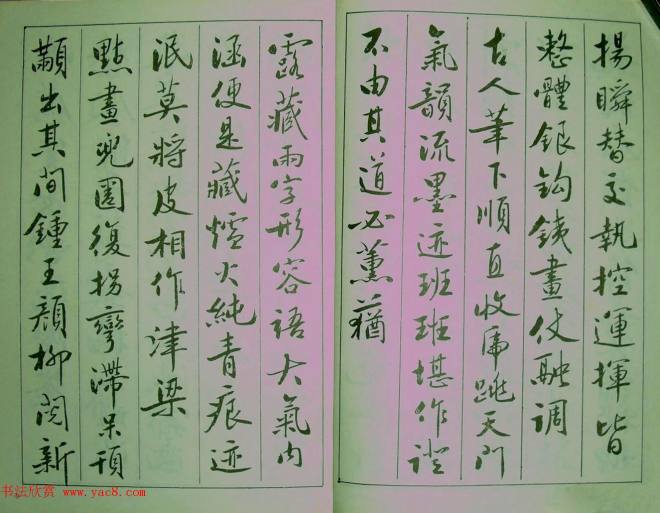 揚瞬替交執控運揮皆
整體銀鈎鉄畫仗融調
古人筆下順直收虎跳天門
氣韻流墨迹班班堪作證
不由其道必薰蕕
露藏兩字形容語大氣內
涵便是藏爐火純青痕迹
泯莫將皮相作津梁
點畫兜圈復拐彎滯呆頊
顢出其間鍾王顏柳閱新
书法欣赏 www.yac8.com